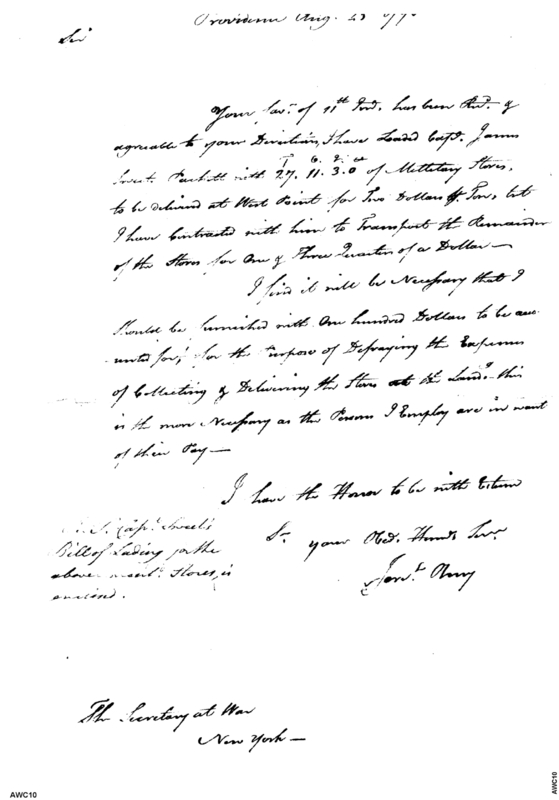 Providence Aug. 23 17
Sir
Your favr. of 11th Inst. has been Recd. &
agreable to your Directions, I have Loaded Capt. James
Sweet. Packett with 27. 11. 3. 0 of Millitary Stores,
to be delivered at West Point for Two Dollars Pr Ton, but
I have Contracted with him to Transport the Remainder
of the Stores for One & Three Quarters of a Dollar—
I find it will be Necessary that I
Should be furnished with One hundred Dollars to be acc
unted for, for the Purpose of Defraying the Expences
of Collecting & Delivering the Stores at the Landg. this
is the more Necessary as the Persons I Employ are in want
of their Pay—
I have the Honor to be with Esteem
Sr. your Obd. Humbl Servt
P.S. Capt. Sweets
Bill of Lading for the
above mentd. Stores, is
enclosed.
The Secretary at War
New York—
AWC10
AWC10